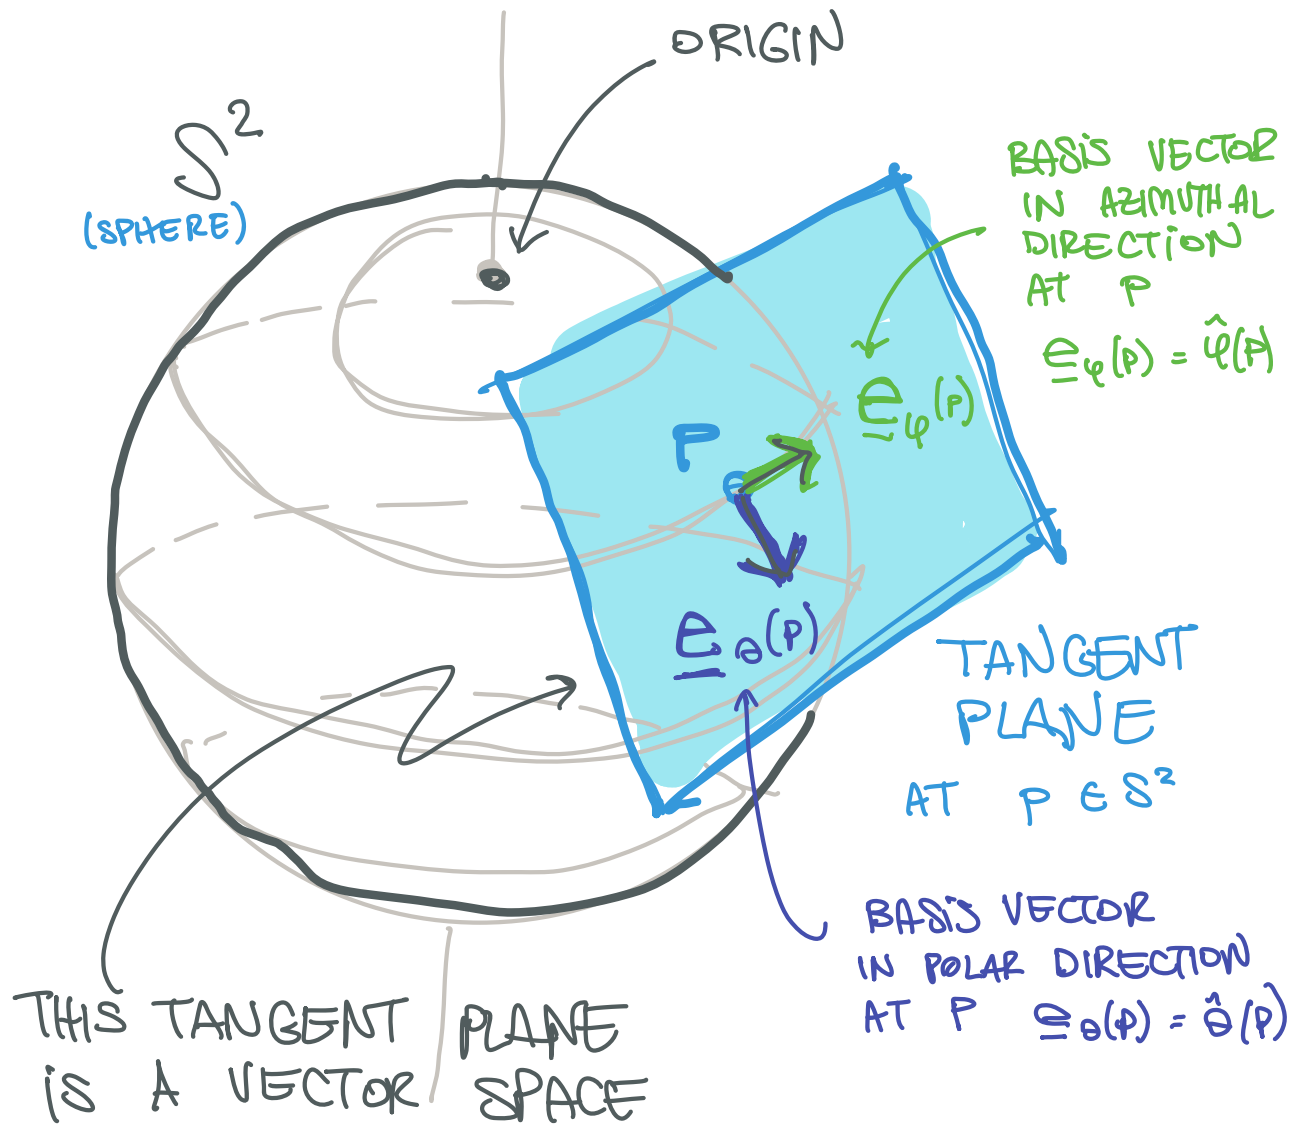 ORIGIN
S²
(SPHERE)
BASIS VECTOR
IN AZIMUTHAL
DIRECTION
AT P
e̲φ(P) = φ̂(P)
e̲φ(P)
P
e̲θ(P)
TANGENT
PLANE
AT P ∈ S²
BASIS VECTOR
IN POLAR DIRECTION
AT P e̲θ(P) = θ̂(P)
THIS TANGENT PLANE
IS A VECTOR SPACE